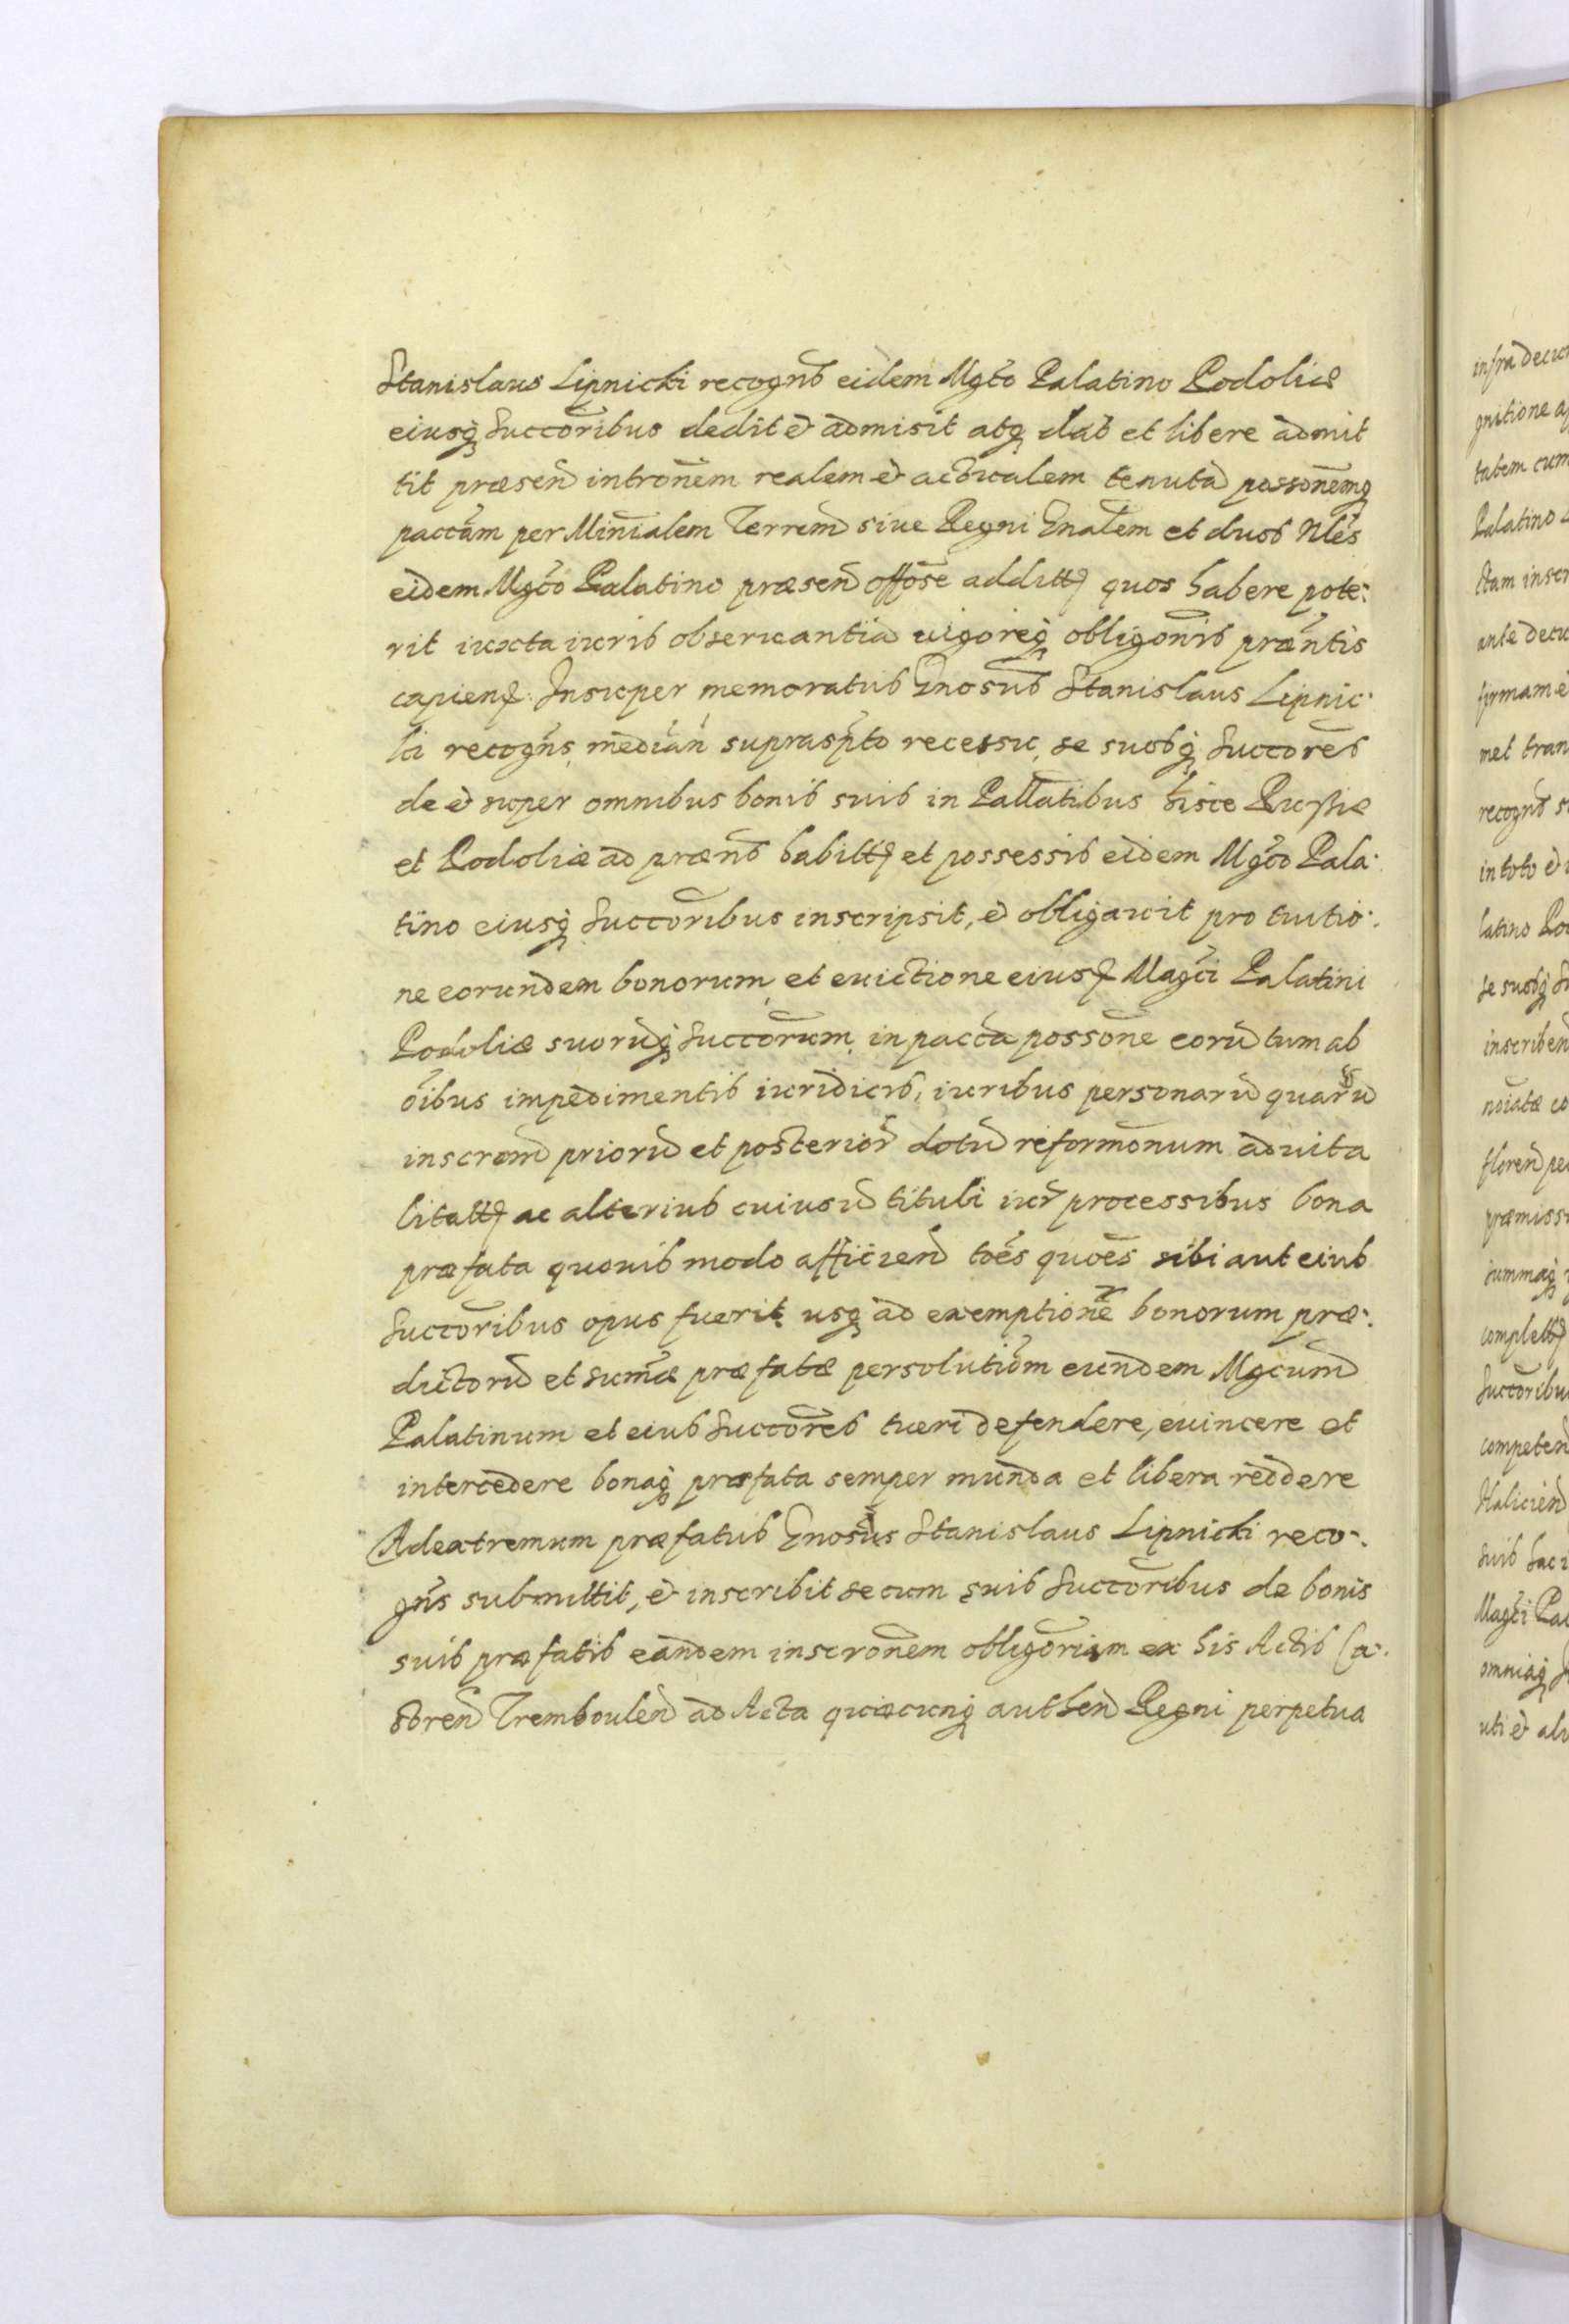 Stanislaus Lipnicki recogns eidem Mgco Palatino Podoliæ
eiusq Succoribus dedit et admisit atq dat et libere admit
tit præsen intronem realem et actualem tenuta possonemq
paccam per Minialem Terrem siue Regni Gnalem et duos Nles
eidem Mgco Palatino præsen offose additt quos habere pote:
rit iuxta iuris obseruantia uigoreq obligonis præntis
capien. Insuper memoratus Gnosus Stanislaus Lipnic:
ki recogns, median supraspto recessu, se suosq Succores
de et super omnibus bonis suis in Pallatibus hisce Russiæ
et Podoliæ ad præns habitt et possessis eidem Mgco Pala:
tino eiusq Succoribus inscripsit, et obligauit pro tuitio:
ne eorundem bonorum, et euictione eiusd Magci Palatini
Podoliæ suoruq Succorum, in pacca possone eoru tum ab
oibus impedimentis iuridicis, iuribus personaru quaru
inscrom prioru et posterior dotu reformonum aduita
litatt ac alterius cuiusu tituli iur processibus bona
præfata quouis modo afficien toes quoes sibi aut eius
Succoribus opus fuerit usq ad exemptione bonorum præ:
dictoru et sumæ præfatæ persolutiom eundem Mgcum
Palatinum et eius Succores tueri defendere, euincere et
intercedere bonaq præfata semper munda et libera reddere
Adextremum præfatus Gnosus Stanislaus Lipnicki reco:
gns submittit, et inscribit secum suis Succoribus de bonis
suis præfatis eandem inscronem obligoriam ex his Actis Ca:
stren Tremboulen ad Acta quæcunq authen Regni perpetua
infra
gnitione
tatem cum
Palatino
ctam inscr
ante
firmam
met tran
recogns
in toto et
latino
se suosq
inscriben
noiatæ
floren
præmiss
summaq
complett
Succoribu
competen
Halicien
suis
Magci
omniaq
uti et